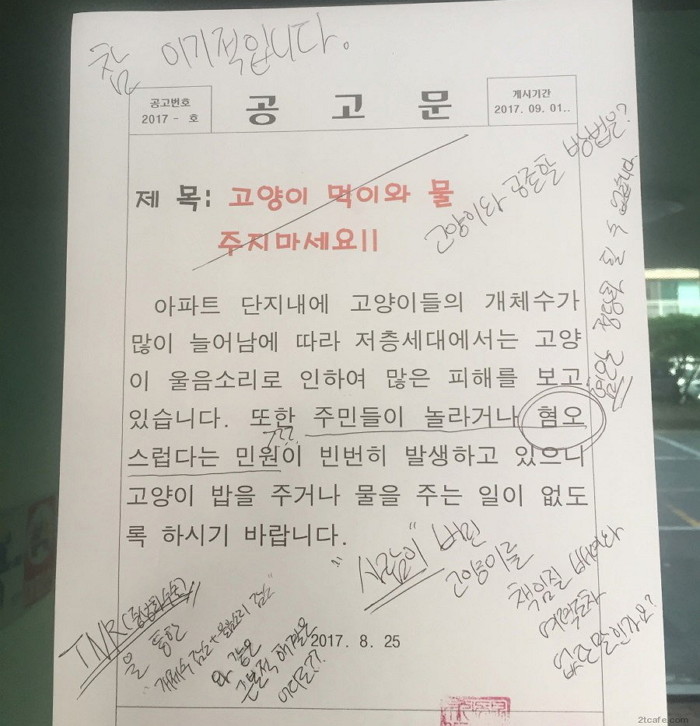 참 이기적입니다.
공고번호
2017 - 호
공 고 문
게시기간
2017. 09. 01..
제 목: 고양이 먹이와 물
주지마세요!!
고양이와 공존할 방법은?
혐오는 정당화 될 수 없습니다
아파트 단지내에 고양이들의 개체수가
많이 늘어남에 따라 저층세대에서는 고양
이 울음소리로 인하여 많은 피해를 보고
있습니다. 또한 주민들이 놀라거나 혐오
???
스럽다는 민원이 빈번히 발생하고 있으니
고양이 밥을 주거나 물을 주는 일이 없도
록 하시기 바랍니다.
"사람이" 버린
고양이를
책임질 배려와
여력조차
없단 말인가요?
TNR(중성화수술)
을 통한
"개체수 감소 + 울음소리 감소"
와 같은
근본적 해결은
어떨지?
2017. 8. 25
2tcafe.com